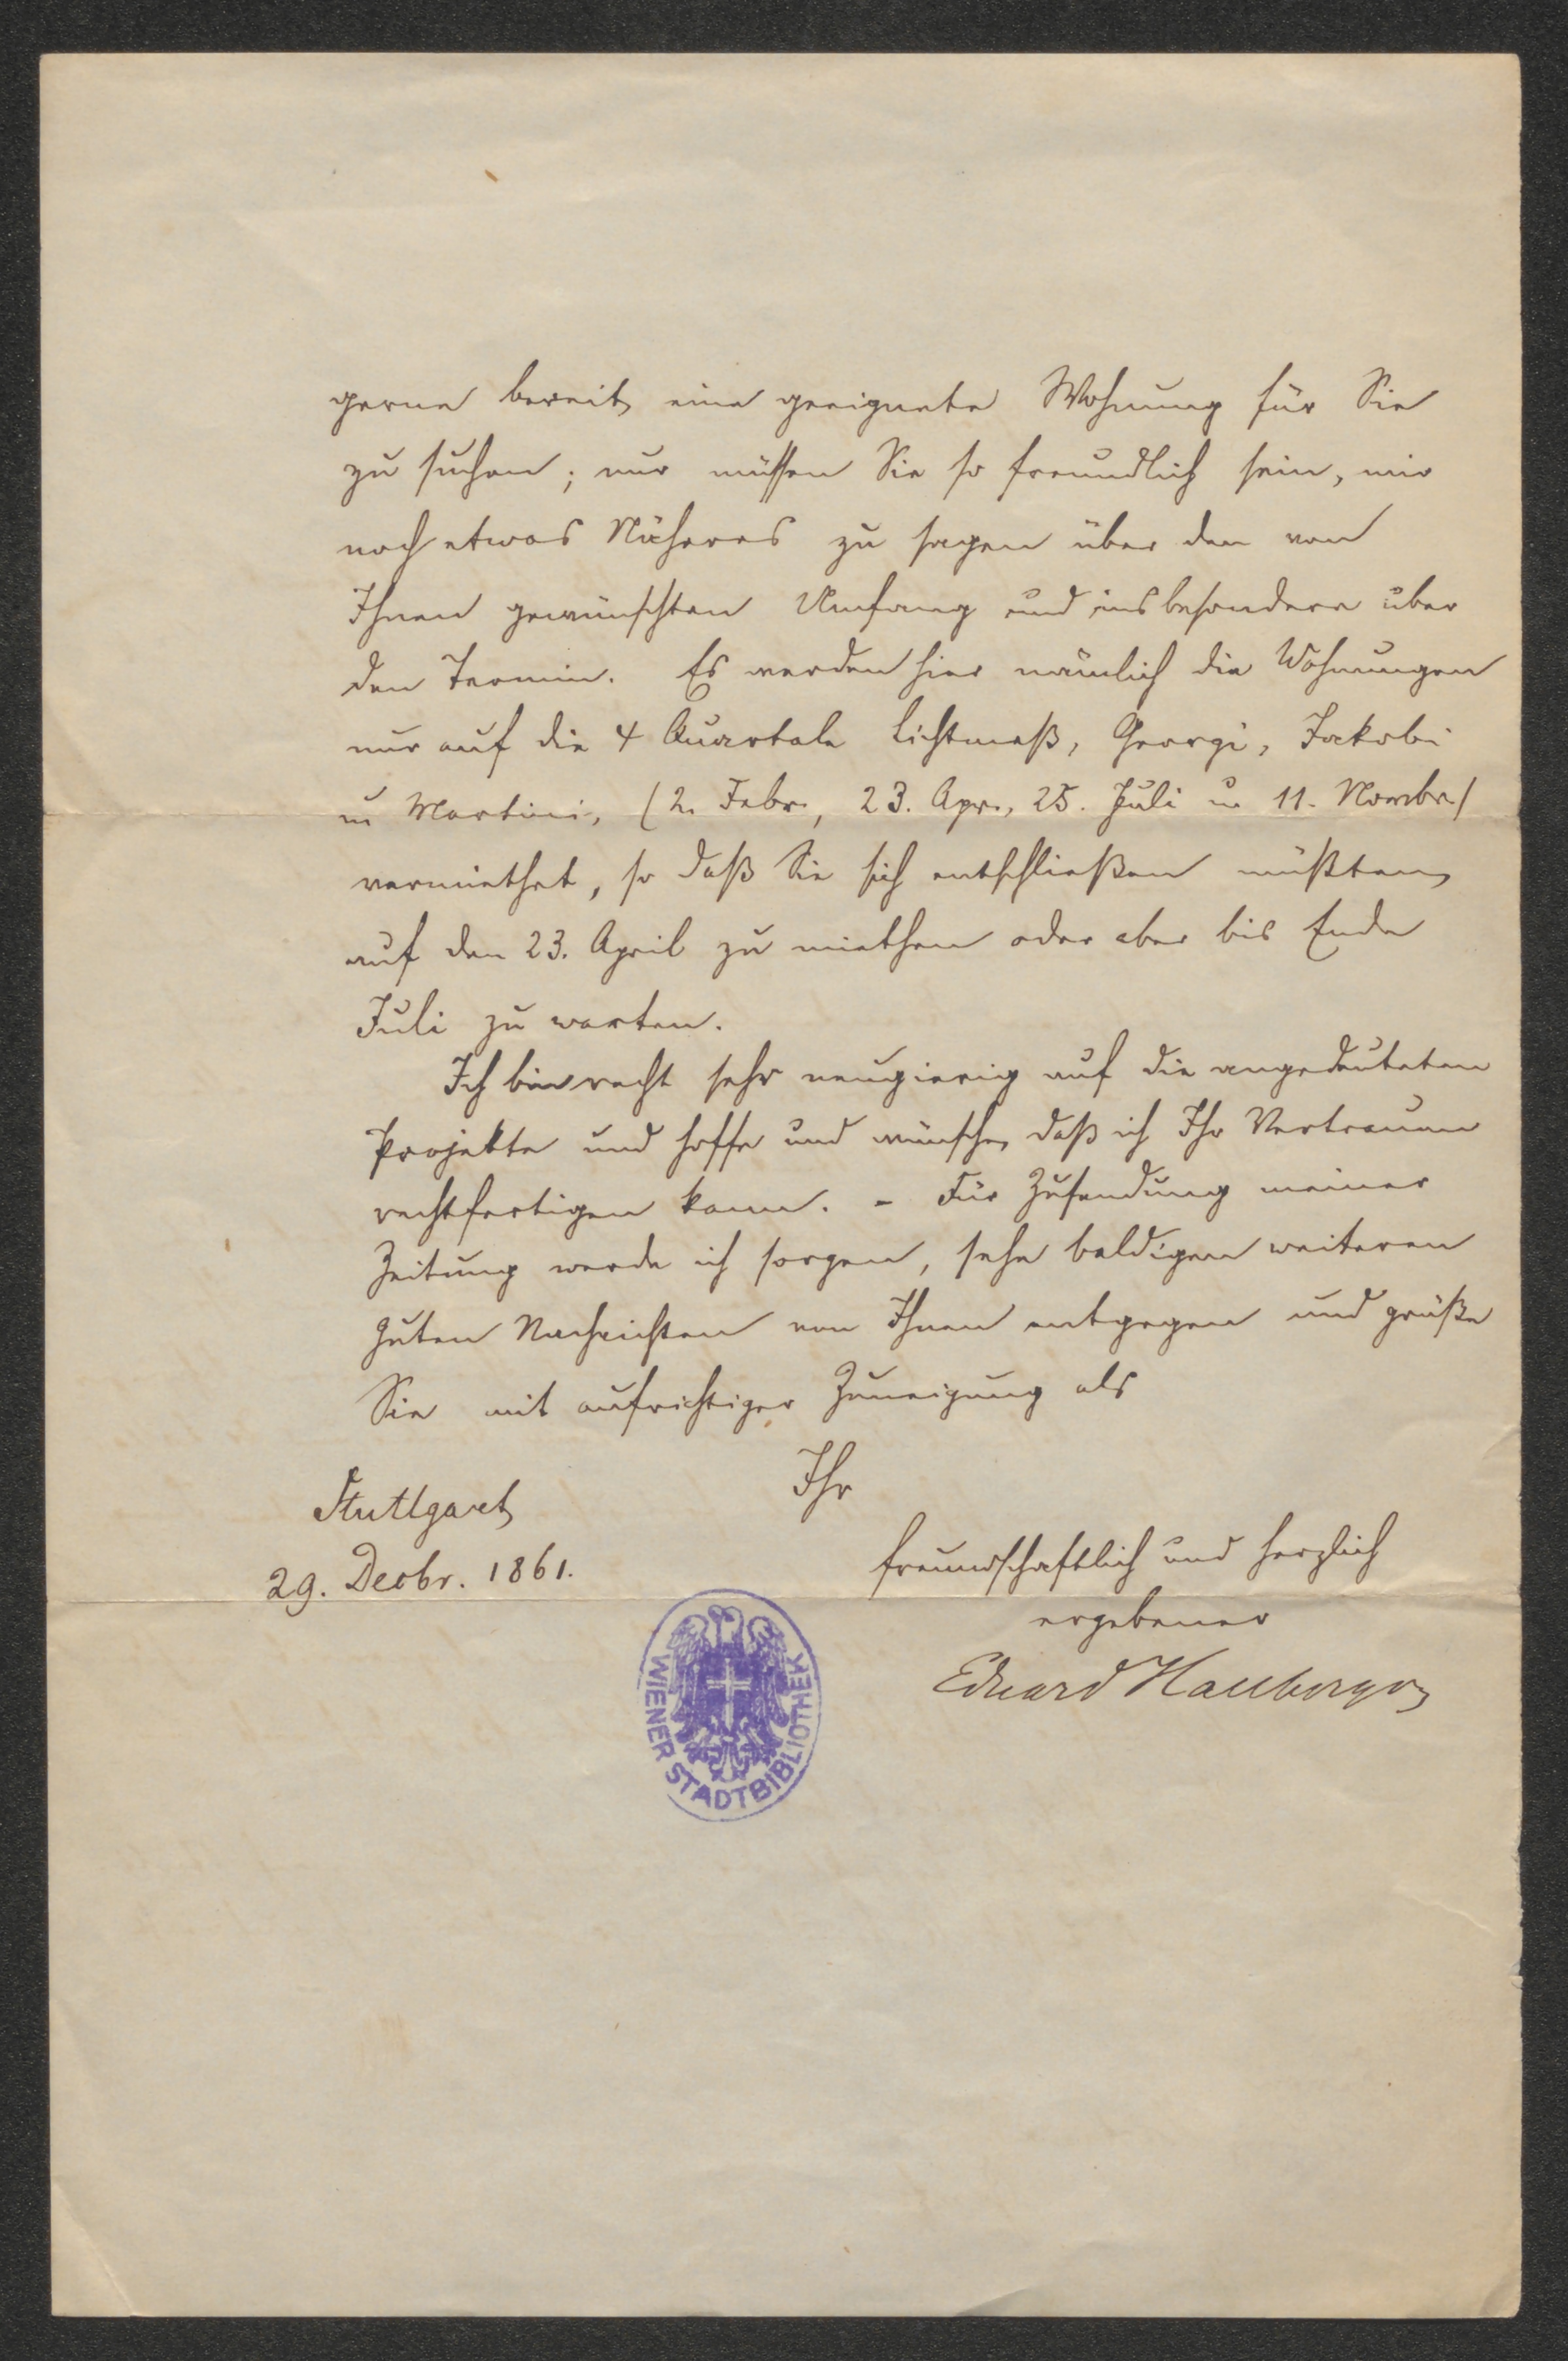 gerne bereit, eine geeignete Wohnung für Sie
zu suchen; nur müssen Sie so freundlich sein, mir
noch etwas Näheres zu sagen über den von
Ihnen gewünschten Umfang und insbesondere über
den Termin. Es werden hier nämlich die Wohnungen
nur auf die 4 Quartale Lichtmeß, Georgi, Jakobi
u Martini, (2. Febr., 23. Apr., 25. Juli u. 11. Novbr.)
vermiethet, so daß Sie sich entschließen müßten,
auf den 23. April zu miethen oder aber bis Ende
Juli zu warten.
Ich bin recht sehr neugierig auf die angedeuteten
Projekte und hoffe und wünsche, daß ich Ihr Vertrauen
rechtfertigen kann. – Für Zusendung meiner
Zeitung werde ich sorgen, sehe baldigen weiteren
guten Nachrichten von Ihnen entgegen und grüße
Sie mit aufrichtiger Zuneigung als
Ihr
freundschaftlich und herzlich
ergebener
Eduard Hallberger
Stuttgart,
29. Decbr. 1861.
WIENER STADTBIBLIOTHEK